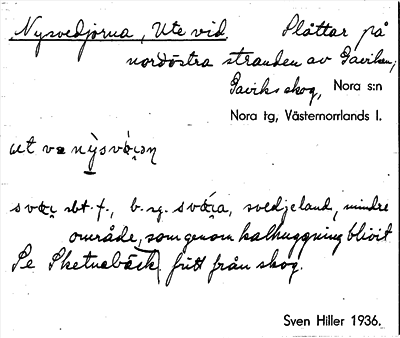 Nysvedjorna, Ute vid Plåttar på
nordöstra stranden av Gaviken,
Gaviks skog, Nora s:n
Nora tg, Västernorrlands l.
ut və nỳsvá
sbt. f., b. sg. svedjeland, mindre
område, som genom kalhuggning blivit
Se Sketnabäck. fritt från skog.
Sven Hiller 1936.